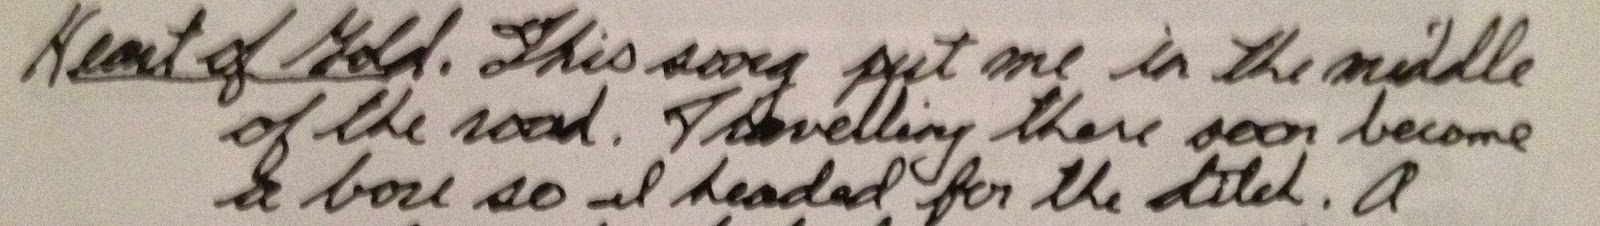 Heart of Gold. This song put me in the middle
of the road. Travelling there soon become
a bore so I headed for the ditch. A